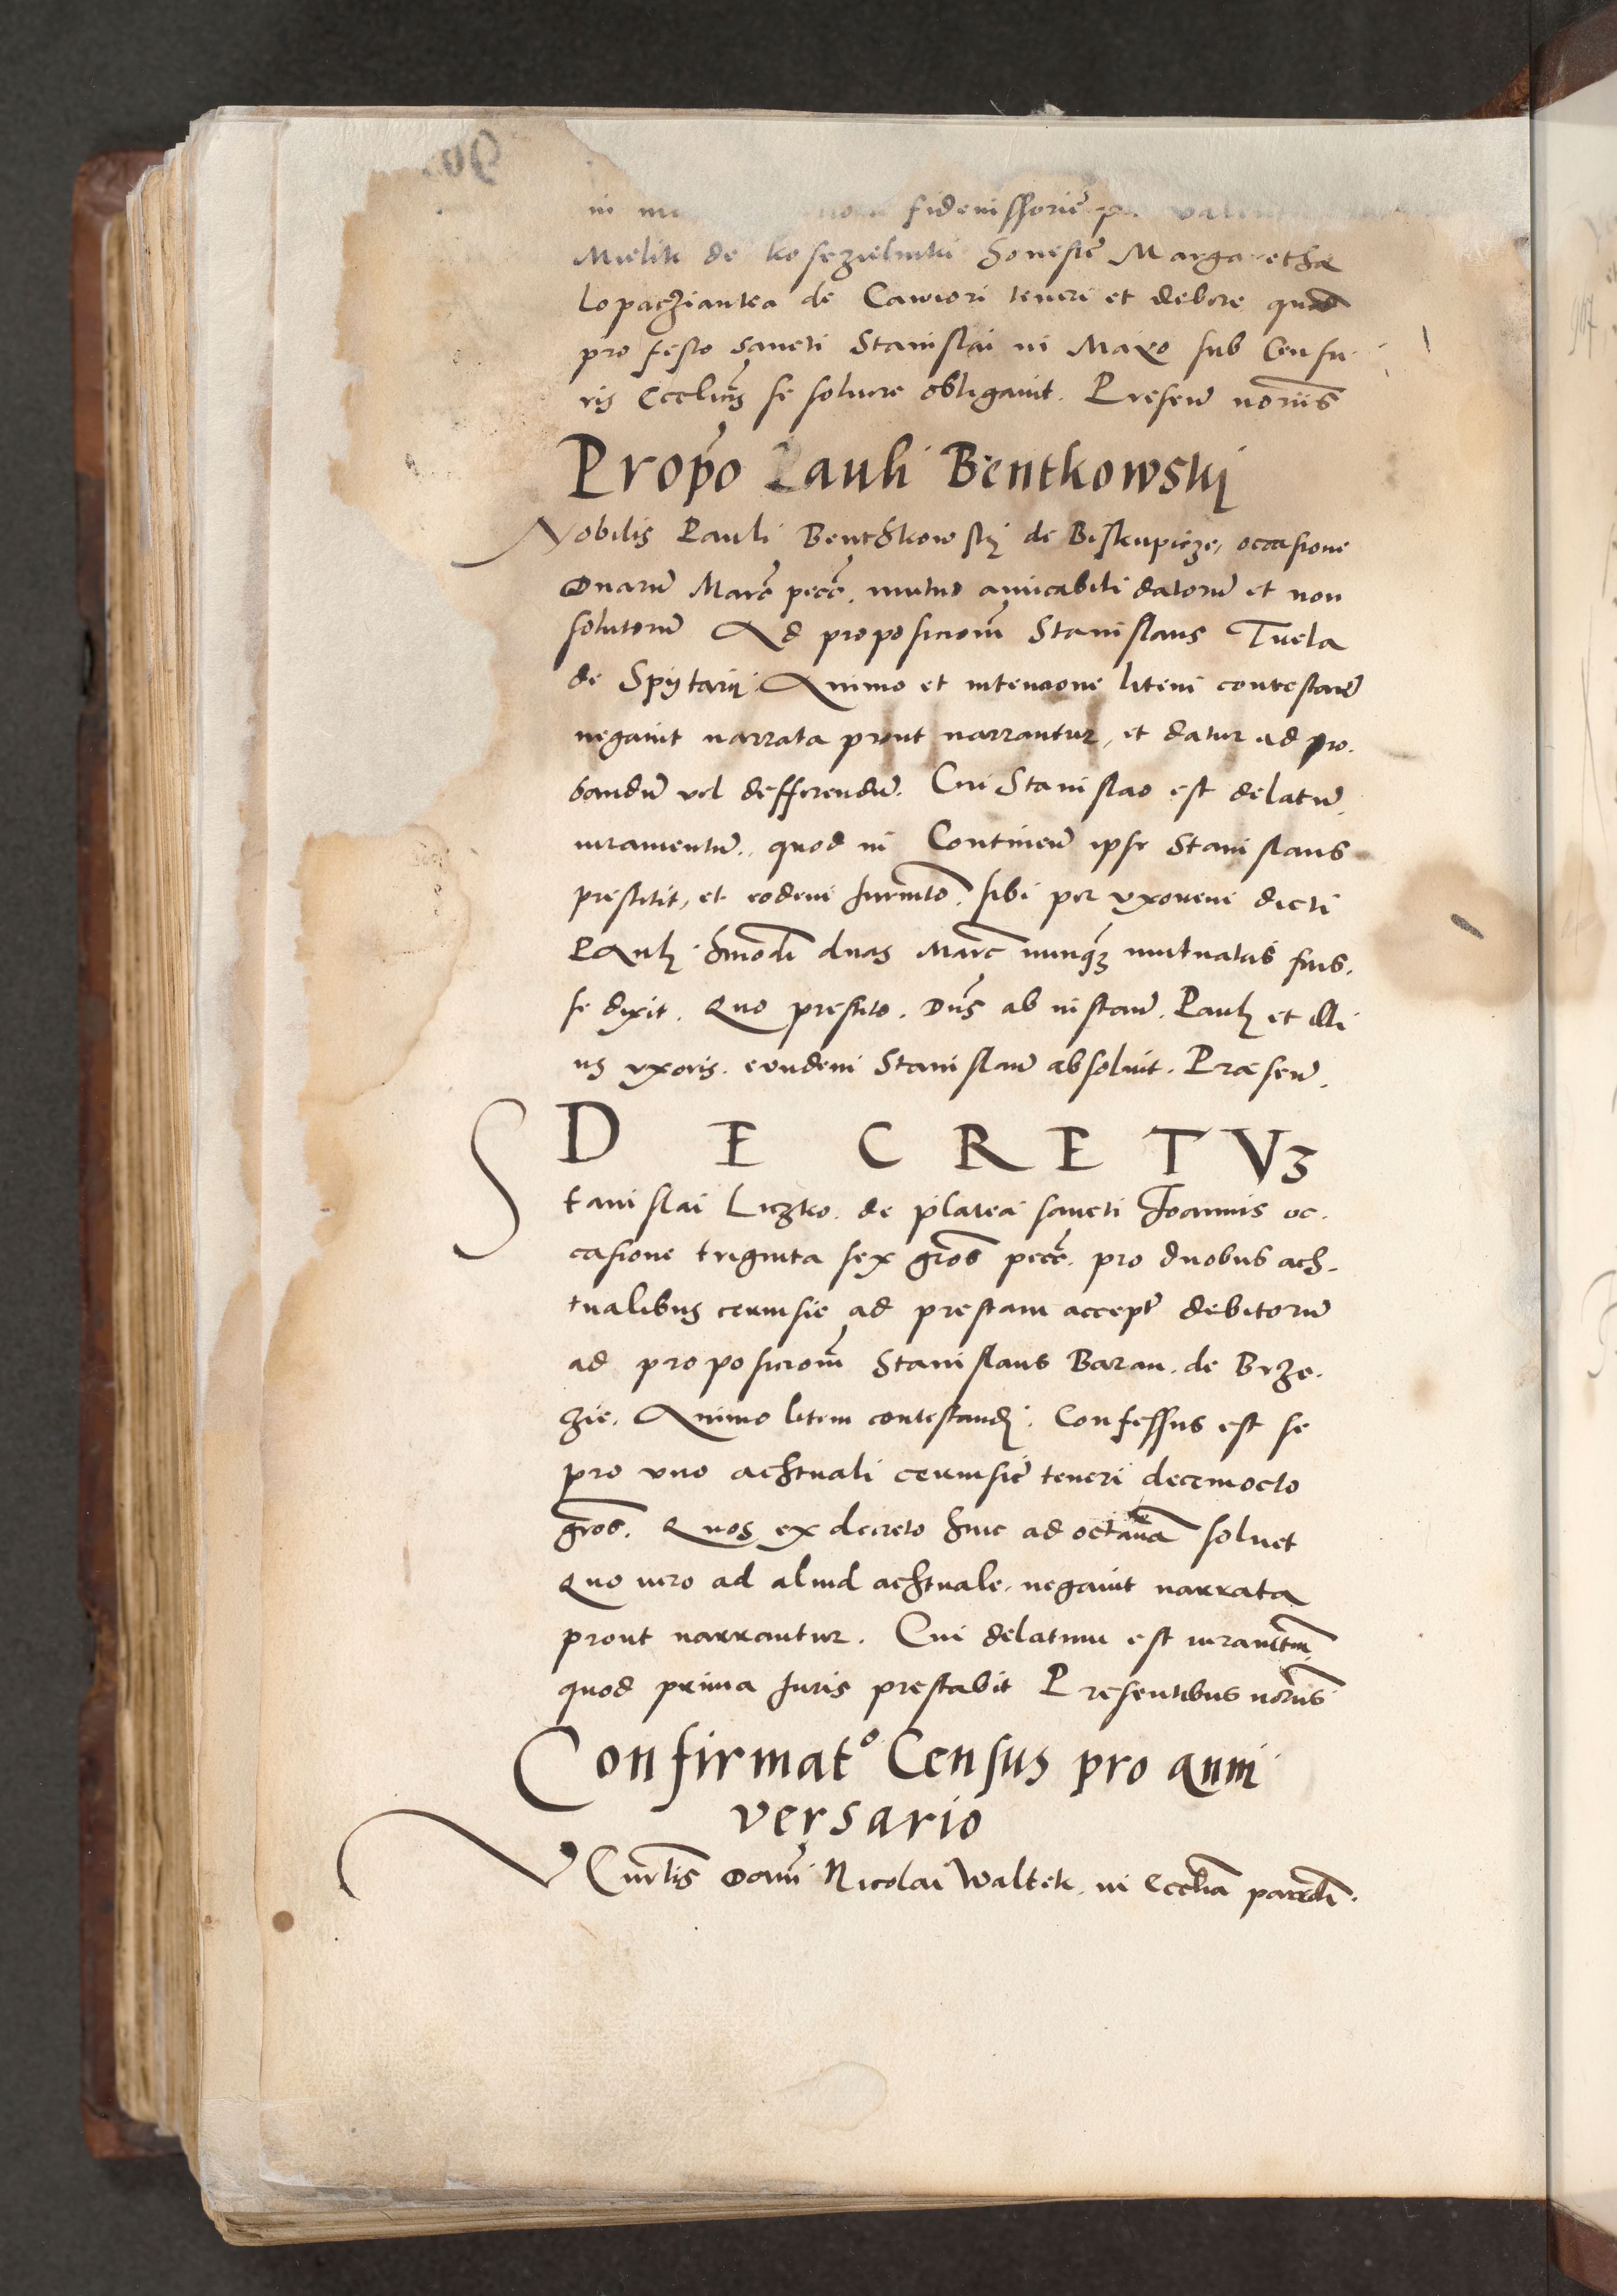 in fideiussorie
Mielik de Koseczielniki honeste Margarethae
Lopacziantea de Cawiori teneri et debere quod
pro festo Sancti Stanislai in Maio sub Censu-
ris Ecclicis se soluere obligauit. Presen̄ notariis
Propo Pauli Bentkowskij
Nobilis Pauli Benthkowskij de Biskupicze, occasione
Duarum Marc̄ pecc̄. mutuo amicabili datorum et non
solutorum Ad proposiciom̄ Stanislaus Tuela
de Spijtarij. Animo et intencione litem contestan̄
negauit narrata prout narrantur, et datur ad pro-
bandum vel defferendum. Cui Stanislao est delatum
iuramentum, quod in Continen̄ ipse Stanislaus
prestitit, et eodem Iurmto. sibi per vxorem dicti
Pauli hmodi duas Marc̄ nunq̄ mutuatas fuis-
se dixit. Quo prestito. Dn̄s ab instan̄. Pauli et illi
us vxoris. eundem Stanislaum absoluit. Praesen̄.
DECRETVZ
Stanislai Liczko. de platea sancti Joannis oc-
casione triginta sex gros pecc̄. pro duobus ach-
tualibus ceruisie ad prestam accept̄ debitorum
ad proposiciom̄ Stanislaus Baran. de Brze-
zie. Animo litem contestandi. Confessus est se
pro vno achtuali ceruisie teneri decemocto
gros. Quos ex decreto hinc ad octaua soluet
Quo uero ad aliud achtuale. negauit narrata
prout narrantur. Cui delatum est iuramtm̄
quod prima Iuris prestabit Presentibus notariis
Confirmat° Census pro anni
versario
Vncturlis Domi Nicolai Waltek. in Ecclia parrli.